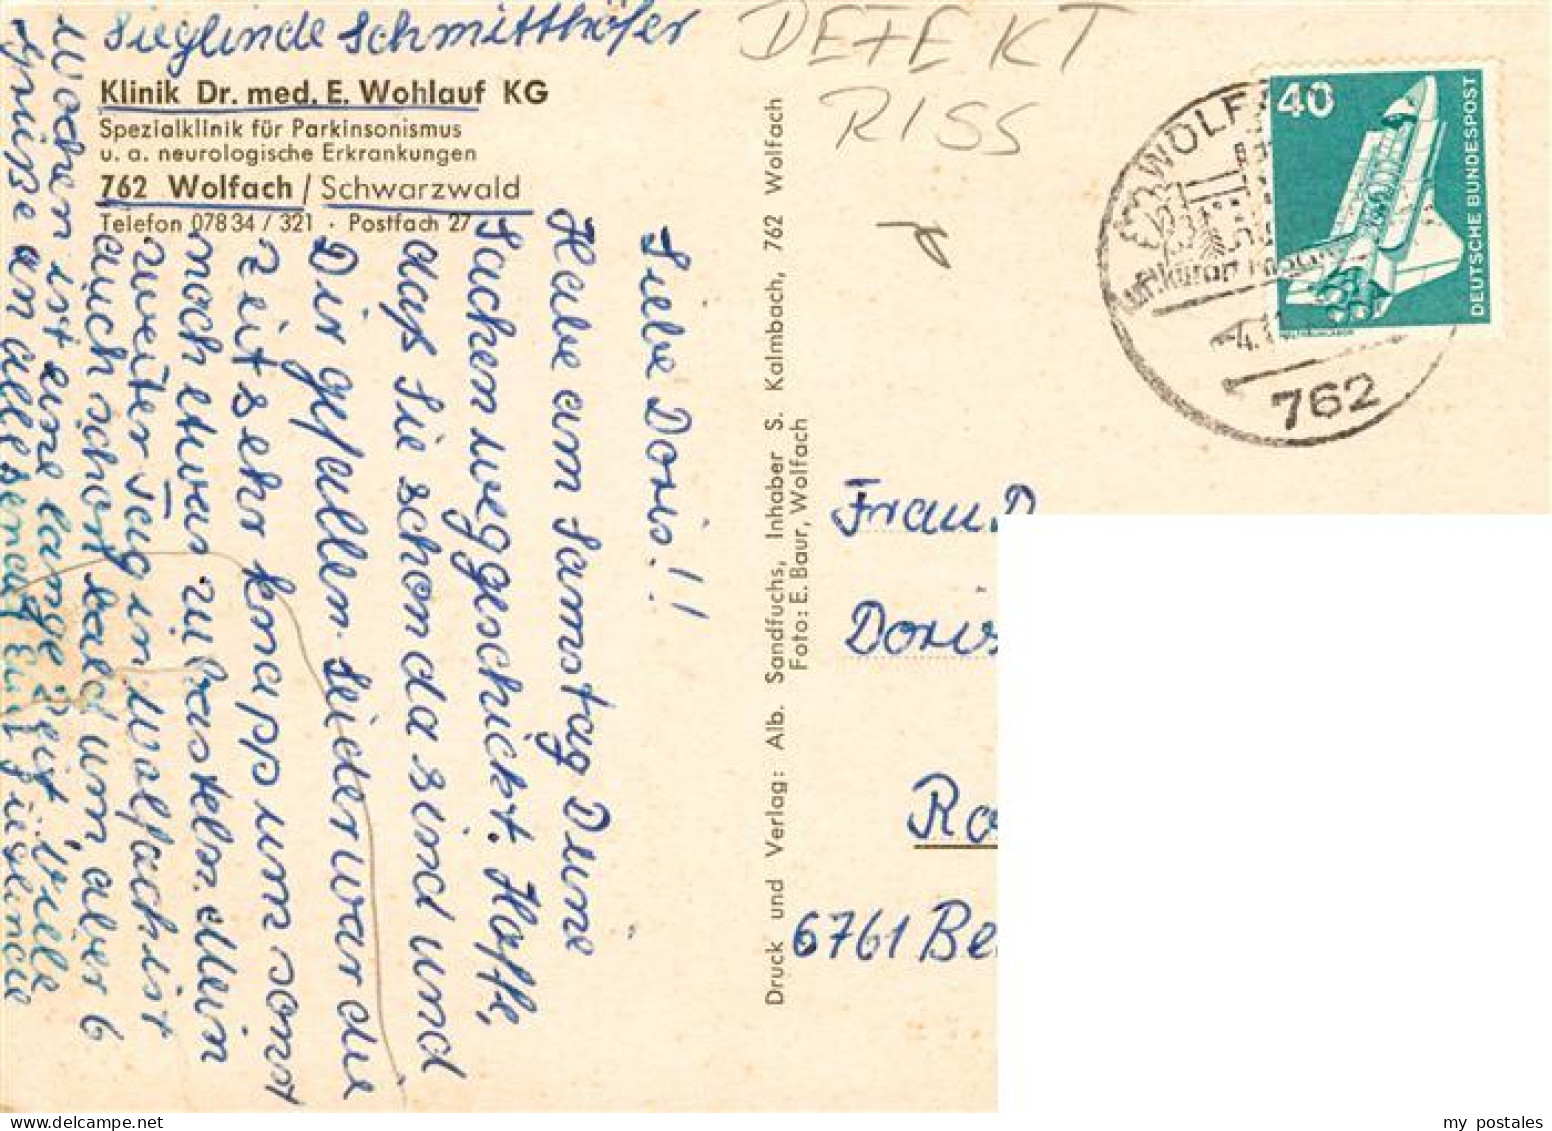 Sieglinde Schmitthöfer
Klinik Dr. med. E. Wohlauf KG
Spezialklinik für Parkinsonismus
u. a. neurologische Erkrankungen
762 Wolfach / Schwarzwald
Telefon 07834 / 321 · Postfach 27
DEFEKT
RISS
Liebe Doris!!
Habe am Samstag Deine
Sachen weggeschickt. Hoffe,
daß Sie schon da sind und
Dir gefallen. Leider war die
Zeit sehr knapp um sonst
noch etwas zu basteln. Mein
zweiter Tag in Wolfach ist
auch schon bald um, aber 6
Wochen ist eine lange Zeit, viele
Grüße an alle sendet Euch Sieglinde
Druck und Verlag: Alb. Sandfuchs, Inhaber S. Kalmbach, 762 Wolfach
Foto: E. Baur, Wolfach
WOLFA
Luftkurort
-4.11
762
40
DEUTSCHE BUNDESPOST
Frau D
Doris
Ro
6761 Be
my postales